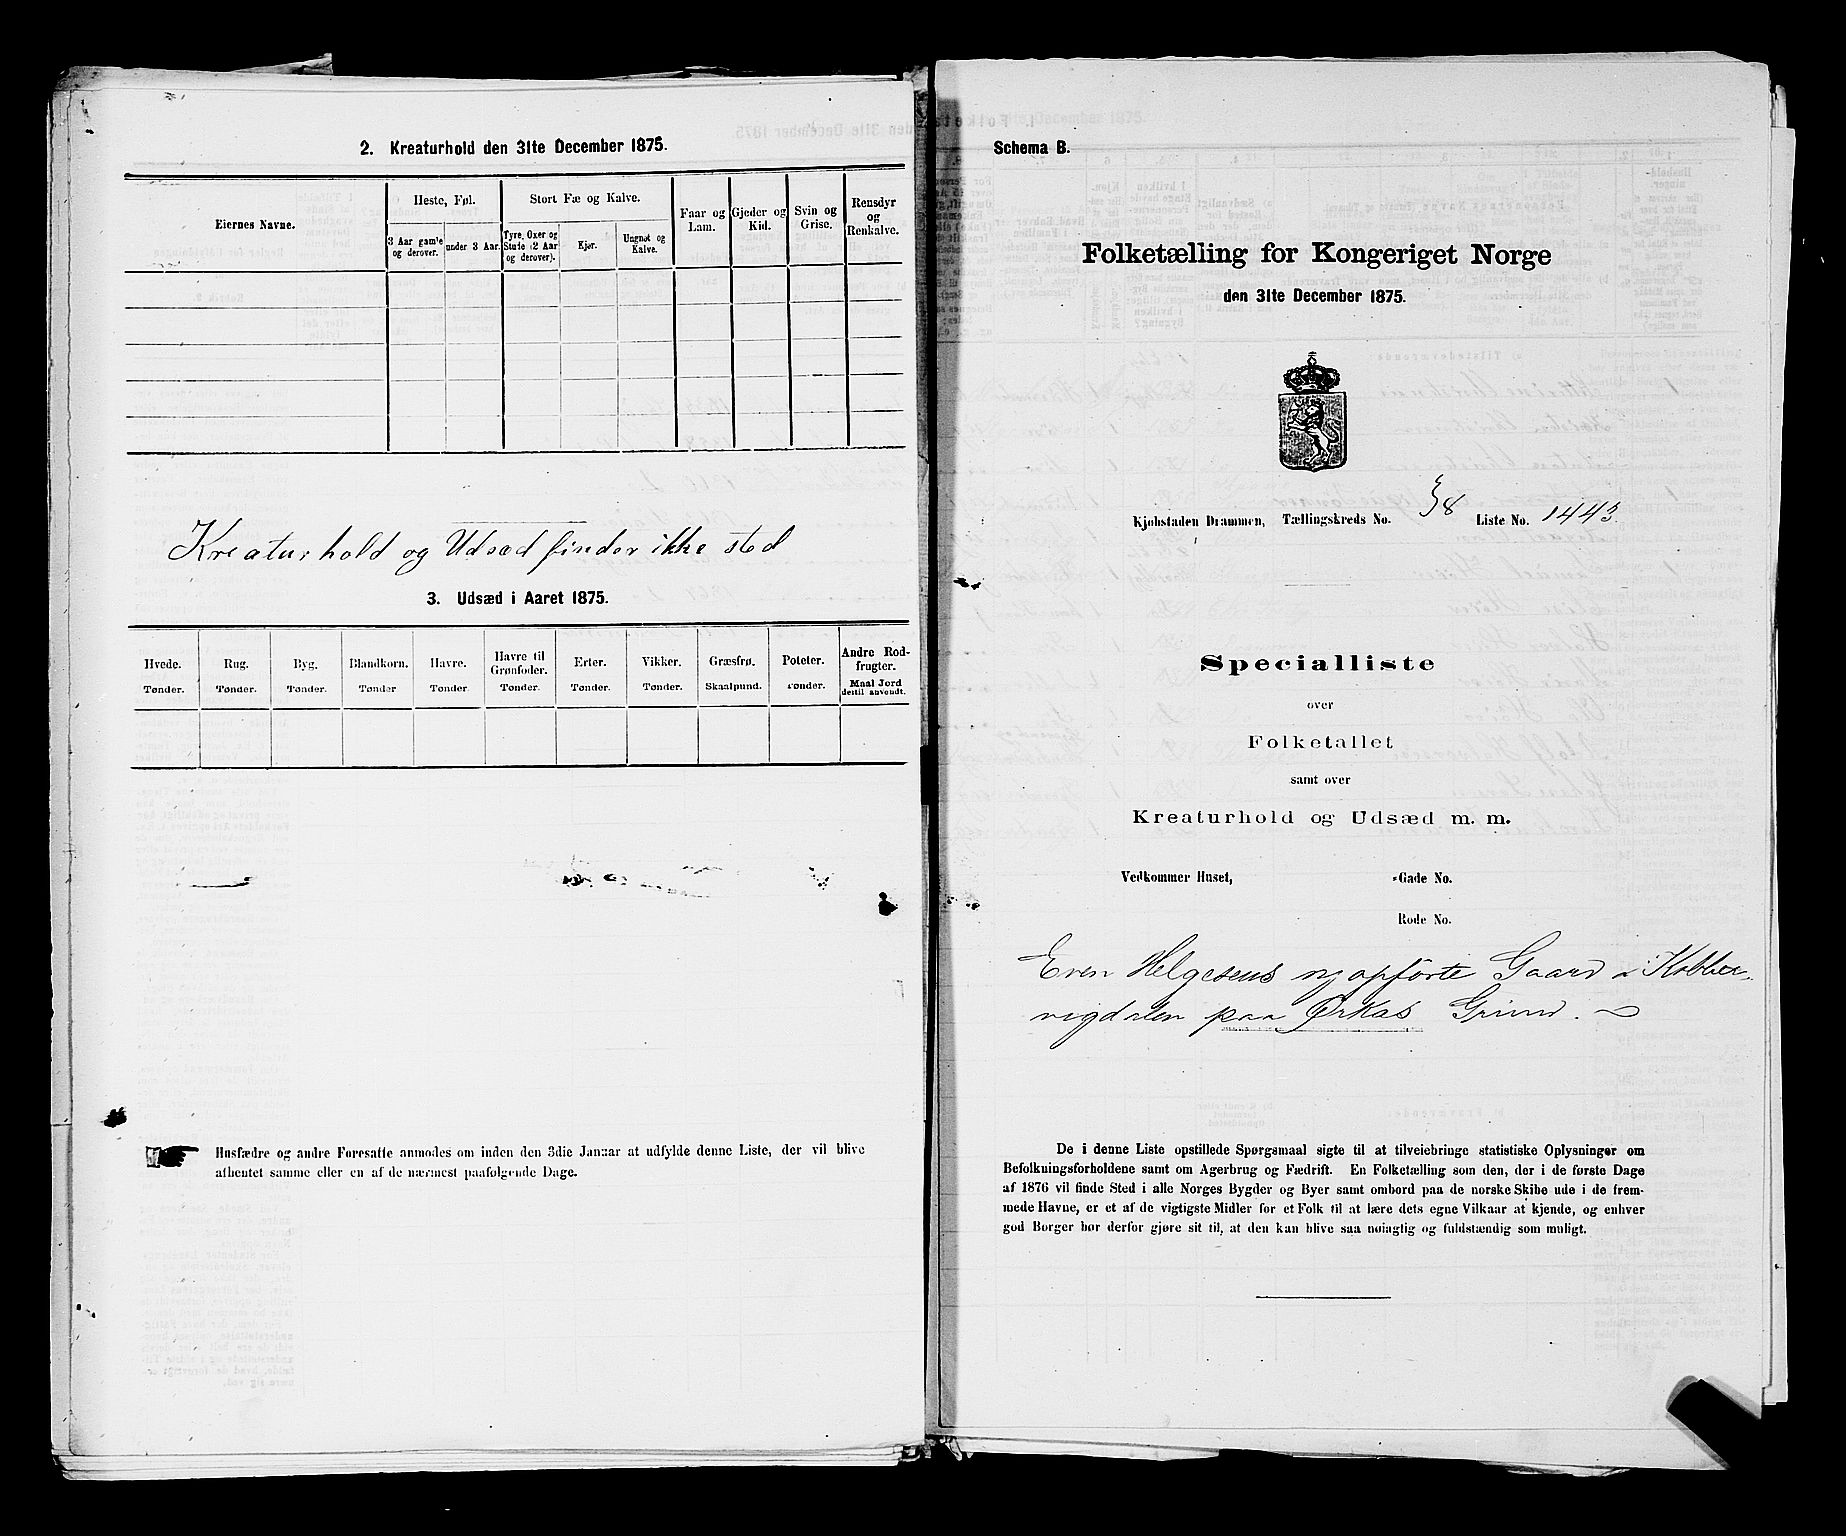 2. Kreaturhold den 31te December 1875.
Eiernes Navne.
Heste, Føl.
Stort Fæ og Kalve.
Faar og Lam.
Gjeder og Kid.
Svin og Grise.
Rensdyr og Renkalve.
3 Aar gamle og derover.
under 3 Aar.
Tyre, Oxer og Stude (2 Aar og derover).
Kjør.
Ungnøt og Kalve.
Kreaturhold og Udsæd finder ikke sted
3. Udsæd i Aaret 1875.
Hvede. Rug. Byg. Blandkorn. Havre. Havre til Grønfoder. Erter. Vikker. Græsfrø. Poteter. Andre Rodfrugter.
Tønder. Tønder. Tønder. Tønder Tønder. Tønder. Tønder. Tønder. Skaalpund. Tønder. Maal Jord dertil anvendt.
Husfædre og andre Foresatte anmodes om inden den 3die Januar at udfylde denne Liste, der vil blive
afhentet samme eller en af de nærmest paafølgende Dage.
Schema B.
Folketælling for Kongeriget Norge
den 31te December 1875.
Kjøbstaden Drammen, Tællingskreds No. 38 Liste No. 1443.
Specialliste
over
Folketallet
samt over
Kreaturhold og Udsæd m. m.
Vedkommer Huset, -Gade No.
Rode No.
Even Helgesens nyopførte Gaard i Kobber-
vigdalen paa Ørkas Grund.
De i denne Liste opstillede Spørgsmaal sigte til at tilveiebringe statistiske Oplysninger om
Befolkningsforholdene samt om Agerbrug og Fædrift. En Folketælling som den, der i de første Dage
af 1876 vil finde Sted i alle Norges Bygder og Byer samt ombord paa de norske Skibe ude i de frem-
mede Havne, er et af de vigtigste Midler for et Folk til at lære dets egne Vilkaar at kjende, og enhver
god Borger bør derfor gjøre sit til, at den kan blive saa nøiagtig og fuldstændig som muligt.